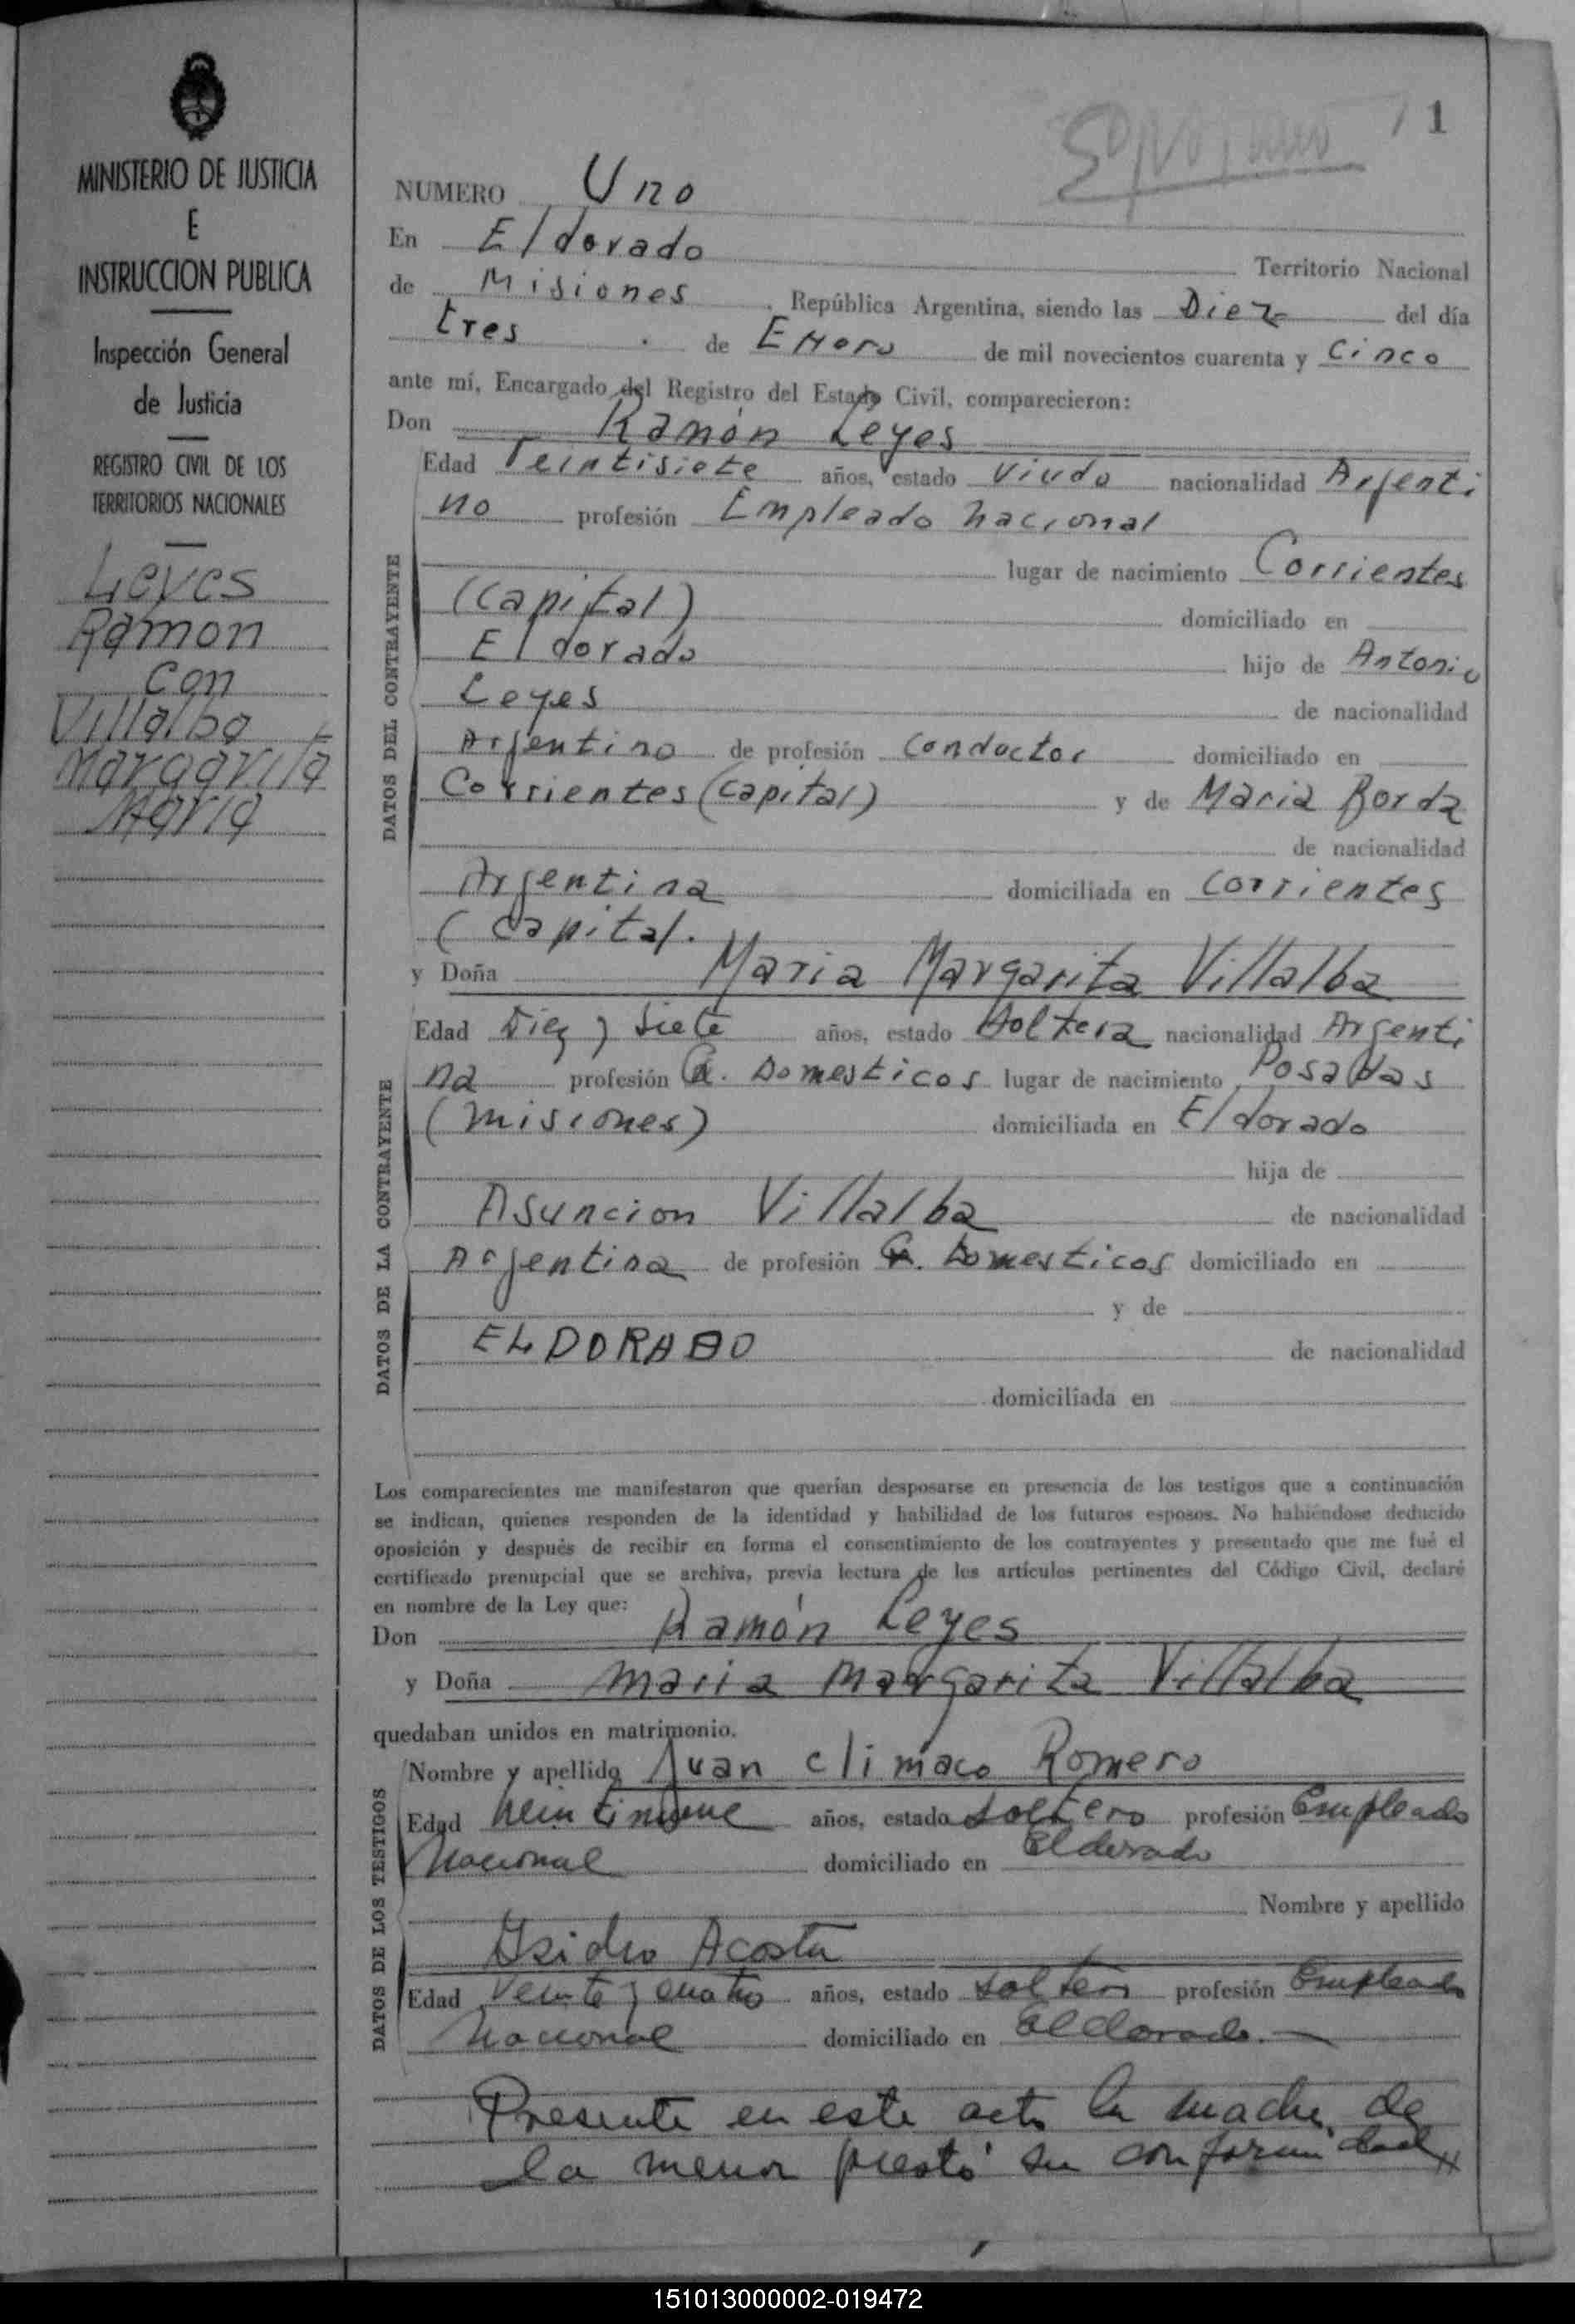 MINISTERIO DE JUSTICIA
E
INSTRUCCION PUBLICA
Inspección General
de Justicia
REGISTRO CIVIL DE LOS
TERRITORIOS NACIONALES
Leyes
Ramon
con
Villalba
Margarita
Maria
1
NUMERO Uno
En Eldorado Territorio Nacional
de Misiones República Argentina, siendo las Diez del día
tres de Enero de mil novecientos cuarenta y Cinco
ante mí, Encargado del Registro del Estado Civil, comparecieron:
Don Ramón Leyes
Edad Veintisiete años, estado Viudo nacionalidad Argenti
no profesión Empleado nacional
lugar de nacimiento Corrientes
(Capital) domiciliado en
El dorado hijo de Antonio
Leyes de nacionalidad
Argentino de profesión Conductor domiciliado en
Corrientes (Capital) y de Maria Borda
de nacionalidad
Argentina domiciliada en Corrientes
(Capital.
DATOS DEL CONTRAYENTE
y Doña Maria Margarita Villalba
Edad Diez y Siete años, estado Soltera nacionalidad Argenti
na profesión Q. Domesticos lugar de nacimiento Posadas
(Misiones) domiciliada en Eldorado
hija de
Asuncion Villalba de nacionalidad
Argentina de profesión Q. Domesticos domiciliado en
y de
ELDORADO de nacionalidad
domiciliada en
DATOS DE LA CONTRAYENTE
Los comparecientes me manifestaron que querían desposarse en presencia de los testigos que a continuación
se indican, quienes responden de la identidad y habilidad de los futuros esposos. No habiéndose deducido
oposición y después de recibir en forma el consentimiento de los contrayentes y presentado que me fué el
certificado prenupcial que se archiva, previa lectura de los artículos pertinentes del Código Civil, declaré
en nombre de la Ley que:
Don Ramón Leyes
y Doña Maria Margarita Villalba
quedaban unidos en matrimonio.
Nombre y apellido Juan Climaco Romero
Edad veintinueve años, estado soltero profesión Empleado
Nacional domiciliado en Eldorado
Nombre y apellido
Isidro Acosta
Edad Veinte y cuatro años, estado soltero profesión Empleado
Nacional domiciliado en Eldorado.
DATOS DE LOS TESTIGOS
Presente en este acto la madre de
la menor prestó su conformidad
151013000002-019472